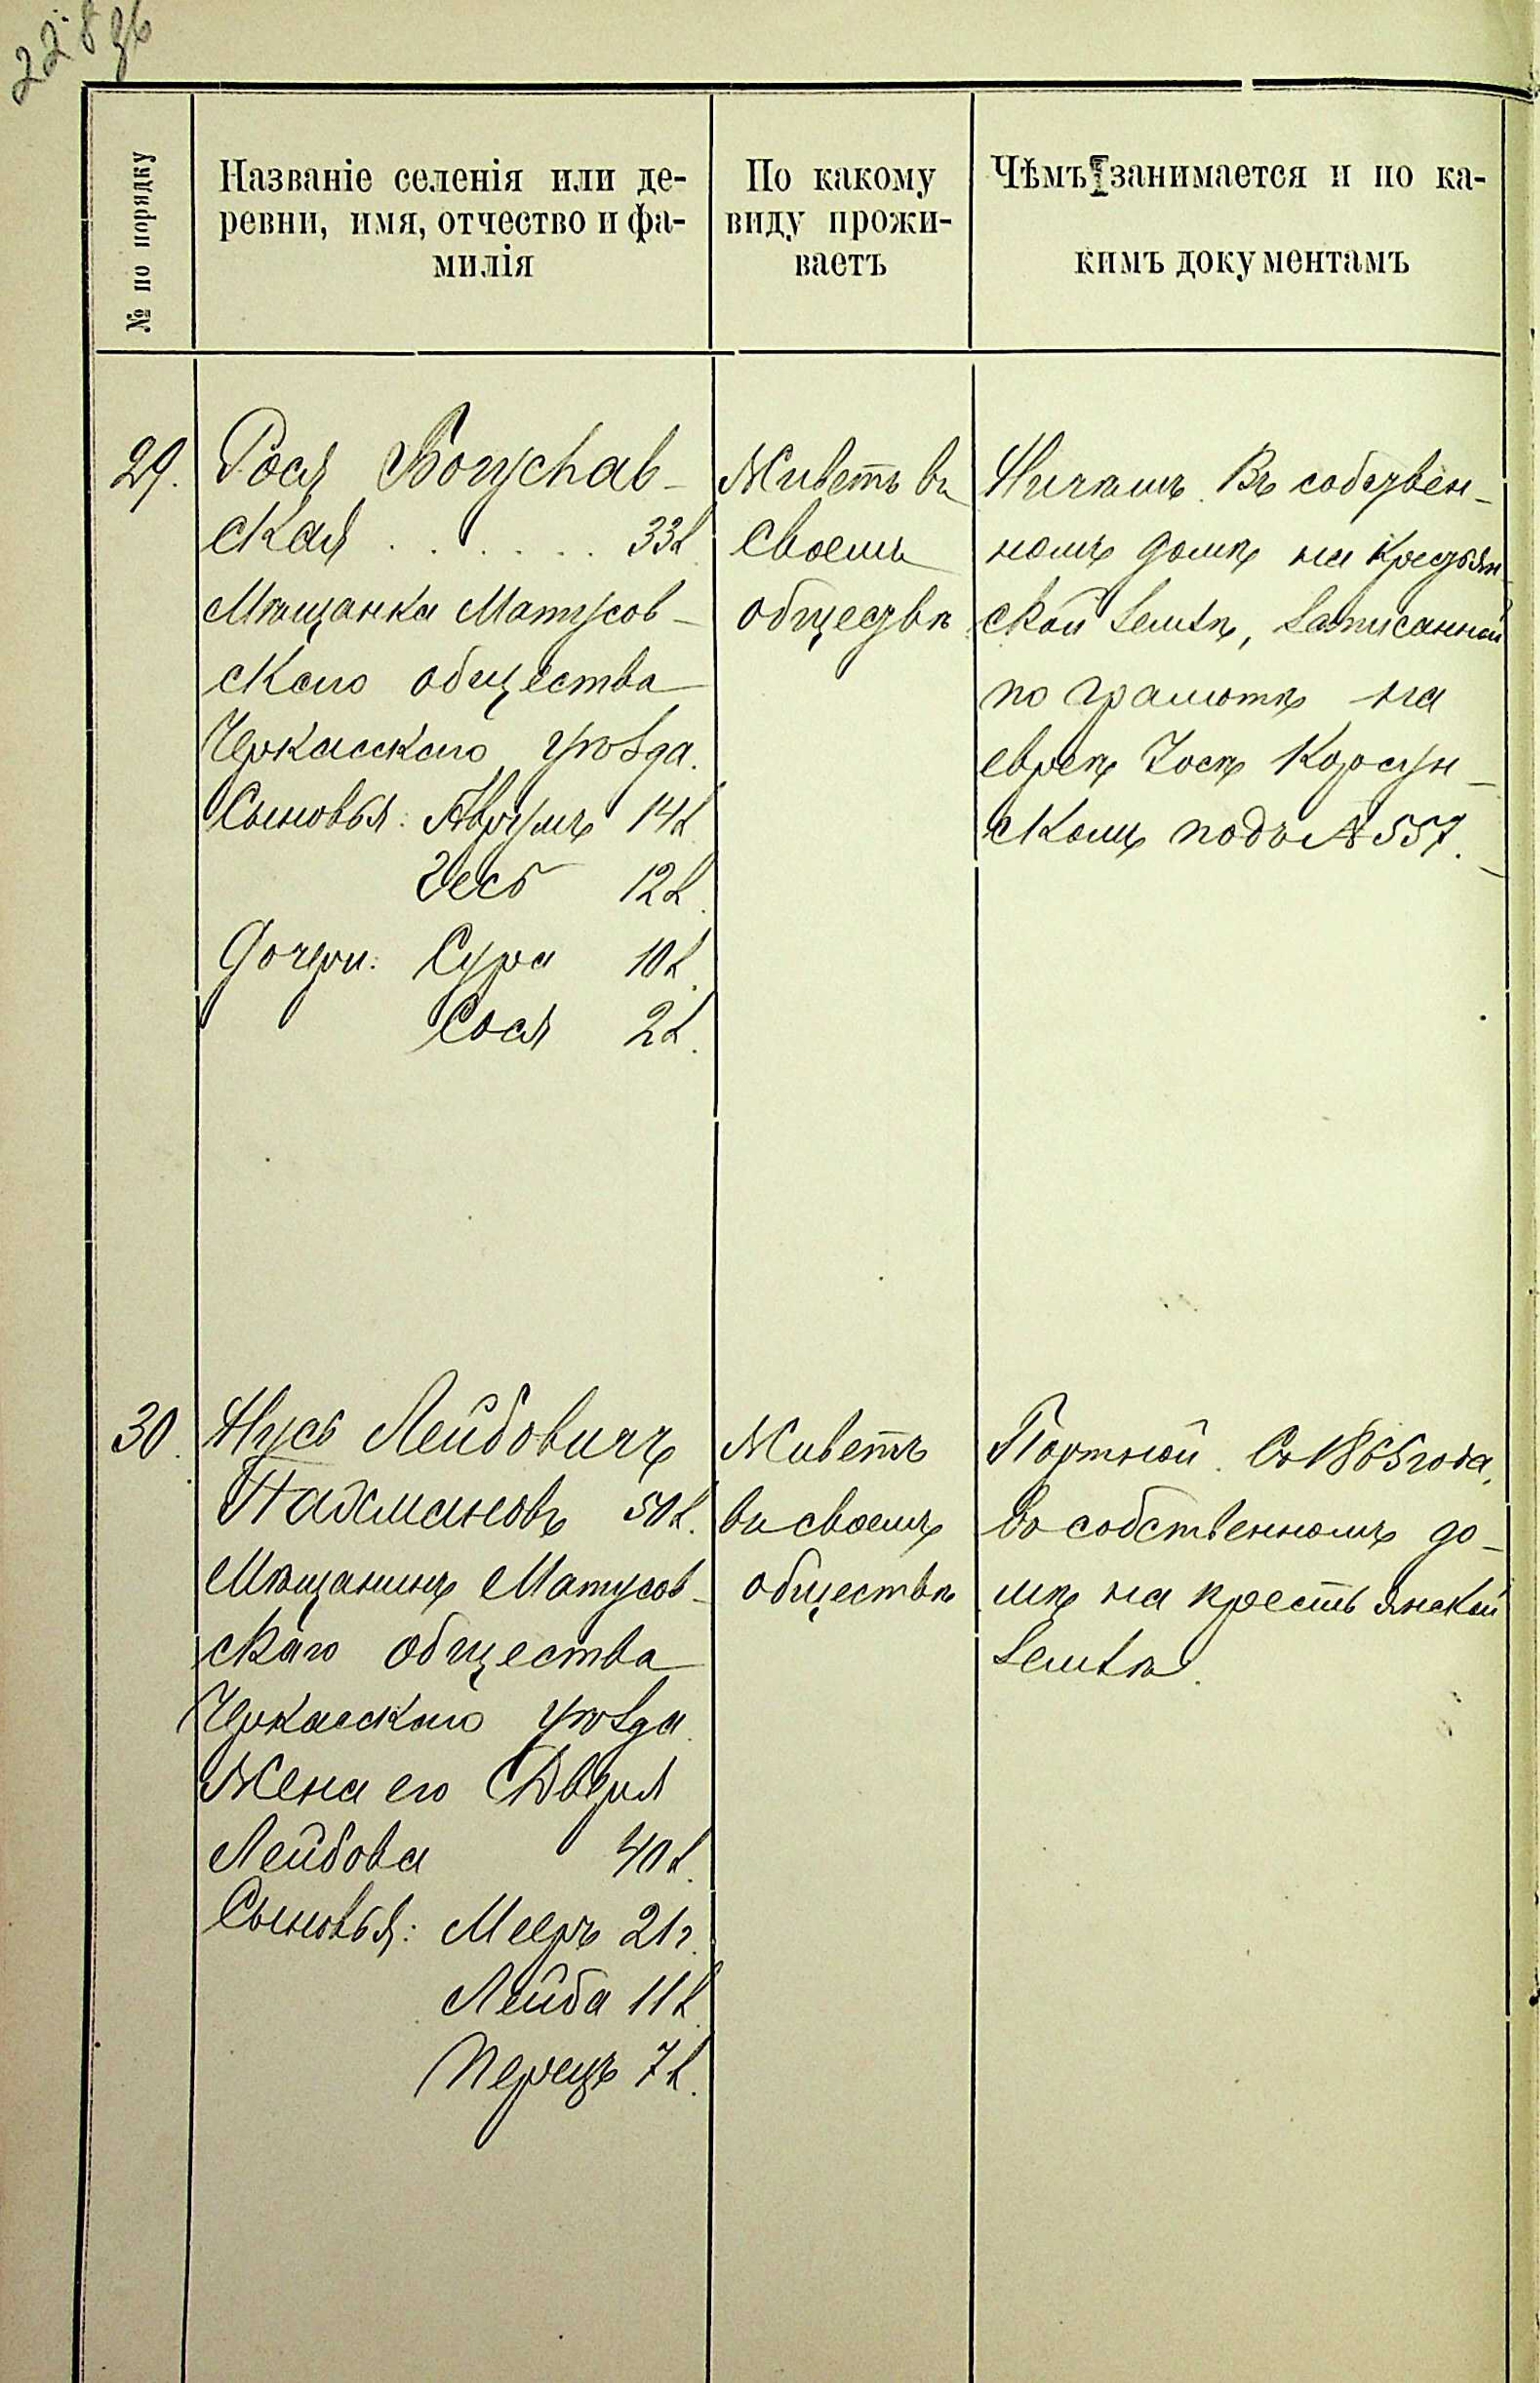 228 об
№ по порядку
Названіе селенія или де-
ревни, имя, отчество и фа-
милія
По какому
виду прожи-
ваетъ
Чѣмъ занимается и по ка-
кимъ документамъ
29.
Рося Богуслав-
ская . . . . . . 33 л.
Мѣщанка Матусов-
скаго общества
Черкасскаго уѣзда.
Сыновья: Аврумъ 14 л.
Зесь 12 л.
Дочери: Сура 10 л.
Сося 2 л.
Живетъ въ
своемъ
обществѣ
Ничѣмъ. Въ собствен-
номъ домѣ на крестьян-
ской землѣ, записанной
по грамотѣ на
еврея Іося Корсун-
скаго подъ № 557.
30.
Нусь Лейбовичъ
Пахмановъ 50 л.
Мѣщанинъ Матусов-
скаго общества
Черкасскаго уѣзда.
Жена его Двейра
Лейбова 40 л.
Сыновья: Мееръ 21 г.
Лейба 11 л.
Перецъ 7 л.
Живетъ
въ своемъ
обществѣ
Портной. Съ 1865 года,
въ собственномъ до-
мѣ на крестьянской
землѣ.